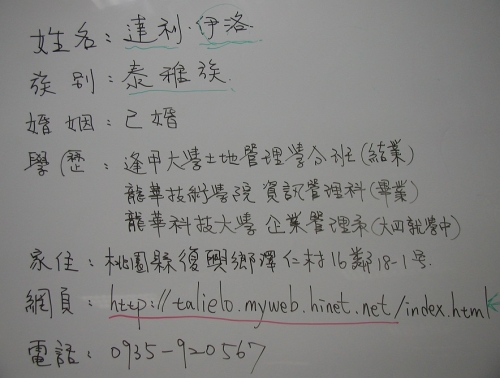 姓名：達利．伊洛
族別：泰雅族
婚姻：已婚
學歷：逢甲大學土地管理學分班(結業)
龍華技術學院 資訊管理科(畢業)
龍華科技大學 企業管理系(大四就學中)
家住：桃園縣復興鄉澤仁村16鄰18-1号.
網頁：http://talielo.myweb.hinet.net/index.html
電話：0935-920567